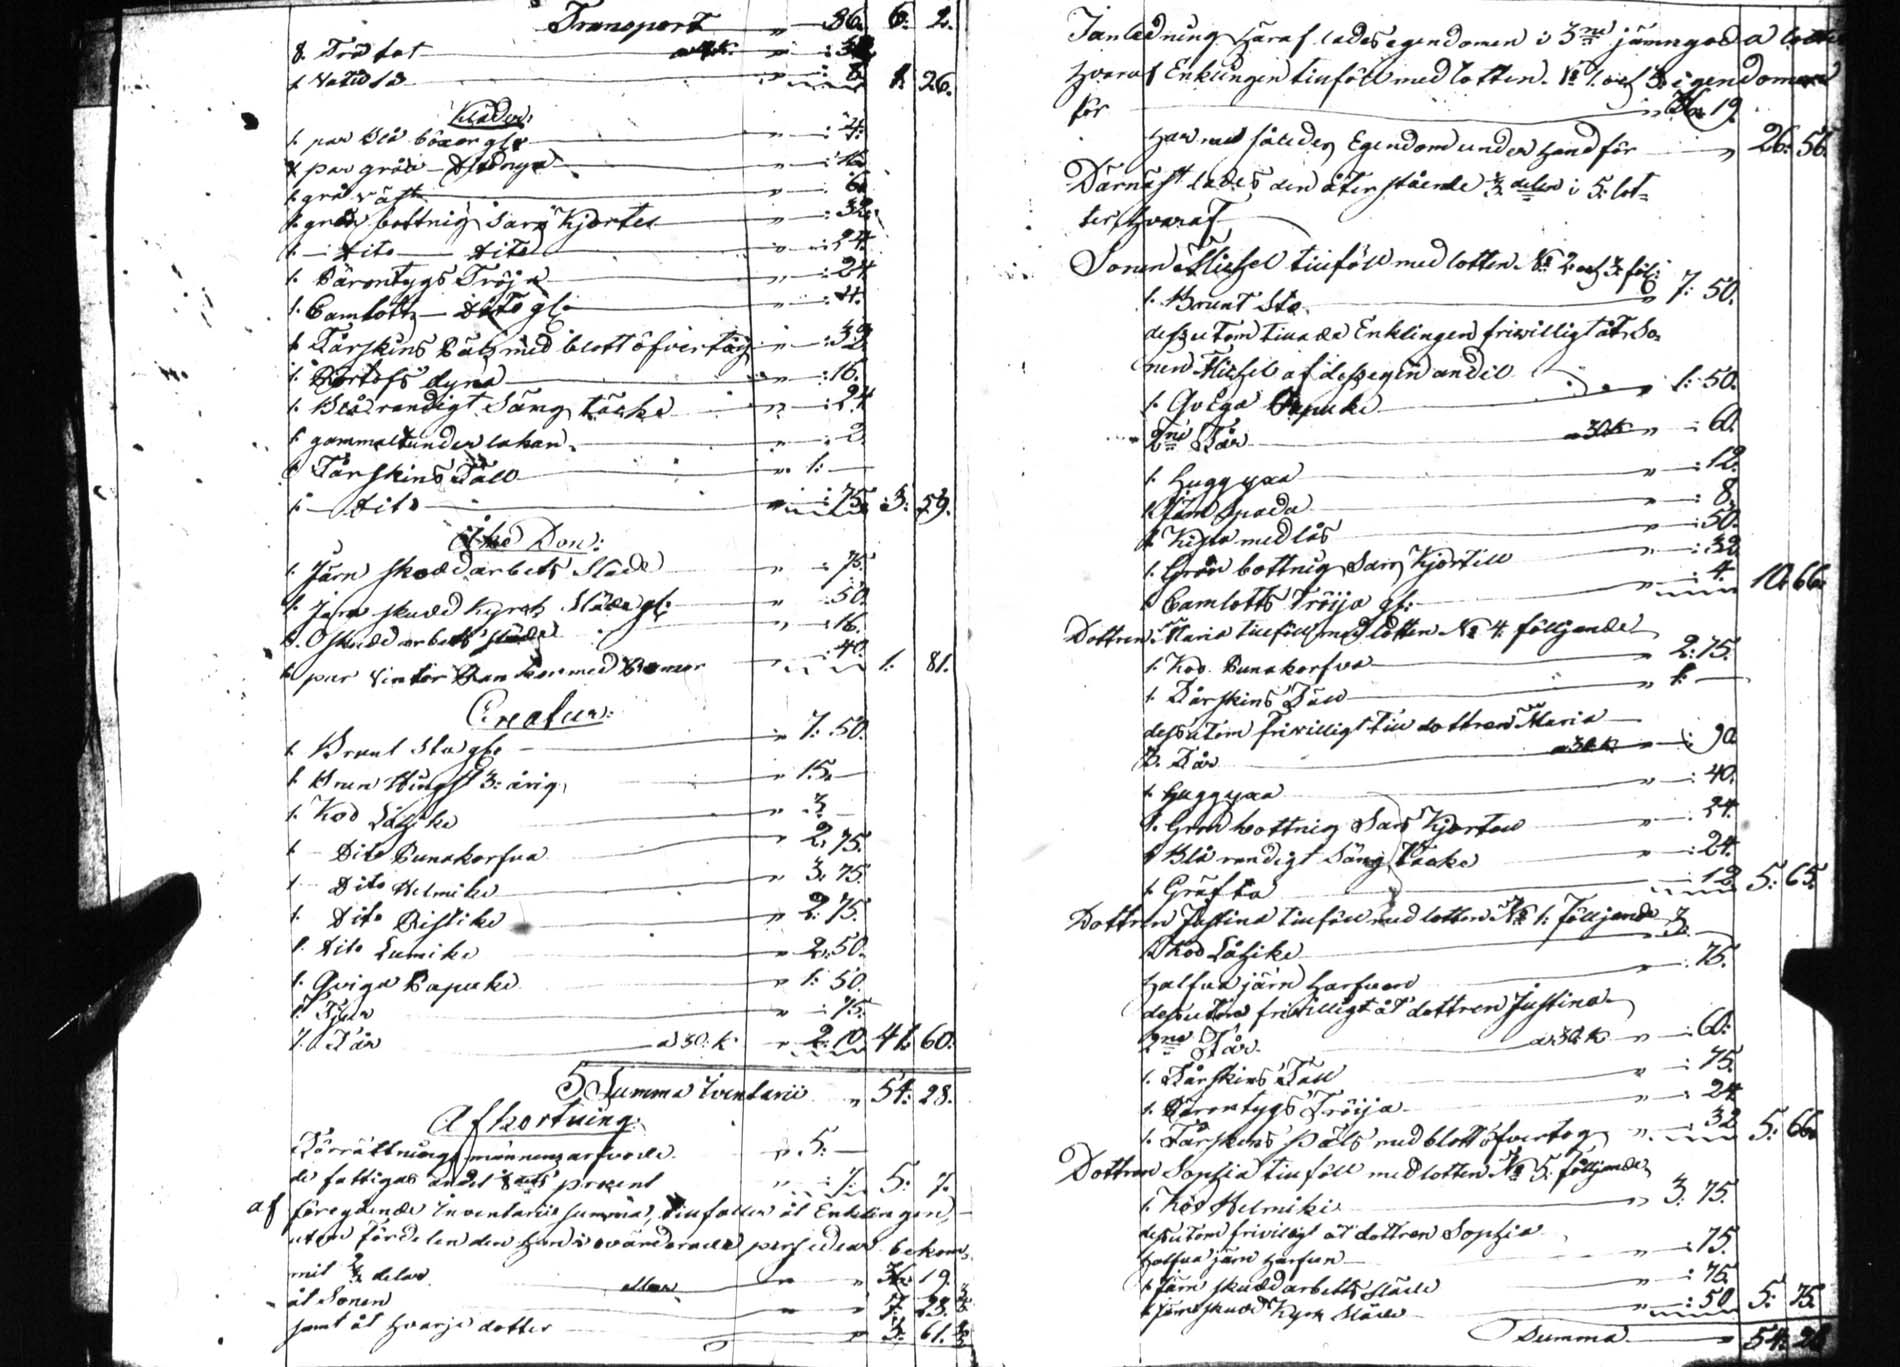 Transport „ 36. 6. 2.
8. Träfat a 4 k. „ —:32
1. Vatuså „ —: 8. 1: 26.
Kläder:
1. par Blå böxor gla „ —: 4:
1 par gråa — Dito nya „ —: 16
1. grå väst „ —: 6.
1. grön bottnig Sars Kjortel „ —: 32.
1. — Dito — Dito „ —: 24.
1. Bärontygs Tröja „ —: 24
1. Camlotts — Dito gl. „ —: 4.
1. Fårskins Päls med blott öfvertåg „ —: 32
1. Bolstofs dyna „ —: 16.
1. Blårandigt Säng täcke „ —: 24
1. gammalt underlakan „ —: 2.
1. Fårskins Fäll „ 1: —
1. — Dito „ —: 75. 3: 59.
Åke Don:
1. Järn skodd arbets Släde „ —: 75.
1. Järn skodd Kyrk Släde gl: „ —: 50.
1. Oskodd arbets släde „ —: 16.
1. par Vinter Rankor med Bommor —: 40. 1: 81.
Creatur:
1. Brunt Sto gl. „ 7: 50.
1. Brun Hingst 3: årig „ 15. —
1. Kod Låtike „ 3. —
1 — Dito Punakorfva „ 2. 75.
1 — Dito Helmike „ 3. 75.
1. Dito Ristike „ 2. 75.
1. Dito Lumike „ 2. 50.
1. Qviga Papuke „ 1: 50
1. Tjur „ —: 75.
7. Får a 30. k. „ 2: 10 41: 60.
Summa Inventarii „ 54: 28.
Afkortning:
Förrättnings männens arfvode „ 5. —
de fattigas andel 1/8 procent „ —: 7. 5: 7.
af föregående Inventarii summa, tillfaller åt Enklingen,
utom fördelen den han i ovärderade persedlar bekom-
mit 2/3 delar „ 36. 19.
åt Sonen „ 7: 23.
samt åt hvarje dotter „ 3. 61.
I anledning häraf lades egendomen i 3ne jämngoda lotter
hvaraf Enklingen tillföll med lotten No 1. och 3. egendomen
för „ 36. 19.
har med således Egendom under hand för „ 26: 56.
Därnäst lades den återstående 1/3 delen i 5. lot-
ter, hvaraf
Sonen Michel tillföll med lotten No 2. och 3. föl:
1. Brunt Sto „ 7: 50.
dessutom tillade Enklingen friwilligt åt So-
nen Michel af dess egen andel
1. Qviga Papuke „ 1: 50.
2ne Får a 30 k „ —: 60.
1. Huggyxa „ —: 12.
1. Järn spada „ —: 8.
1. Kista med lås „ —: 50.
1. Grön bottnig Sars Kjortell „ —: 32
1. Camlotts Tröija gl: „ —: 4. 10: 66.
Dottren Maria tillföll med lotten No 4. följande
1. Kod Punakorfva „ 2: 75.
1. Fårskins Fäll „ 1: —
dessutom friwilligt till dottren Maria
3. Får a 30 k —: 90
1. Huggyxa „ —: 40.
1. Grön bottnig Sars Kjortell „ —: 24.
1. Blå randigt Säng Täcke „ —: 24.
1. Gräfta —: 12 5: 65.
Dottren Justina tillföll med lotten No 1: följande
1. Kod Låtike 3. —
Halfva järn harfven „ —: 75.
dessutom friwilligt åt dottren Justina
2ne Får a 30. k. „ —: 60.
1. Fårskins Fäll „ —: 75.
1. Bärontygs Tröija „ —: 24
1. Fårskins Päls med blott öfvertog „ —: 32 5: 66.
Dottren Sophia tillföll med lotten No 5: följande
1. Kod Helmike „ 3. 75.
dessutom friwilligt åt dottren Sophia
Halfva järn harfven „ —: 75.
1. Järn skodd arbetts Släde „ —: 75.
1. Järnskodd Kyrk Släde „ —: 50 5: 75.
Summa „ 54: 28